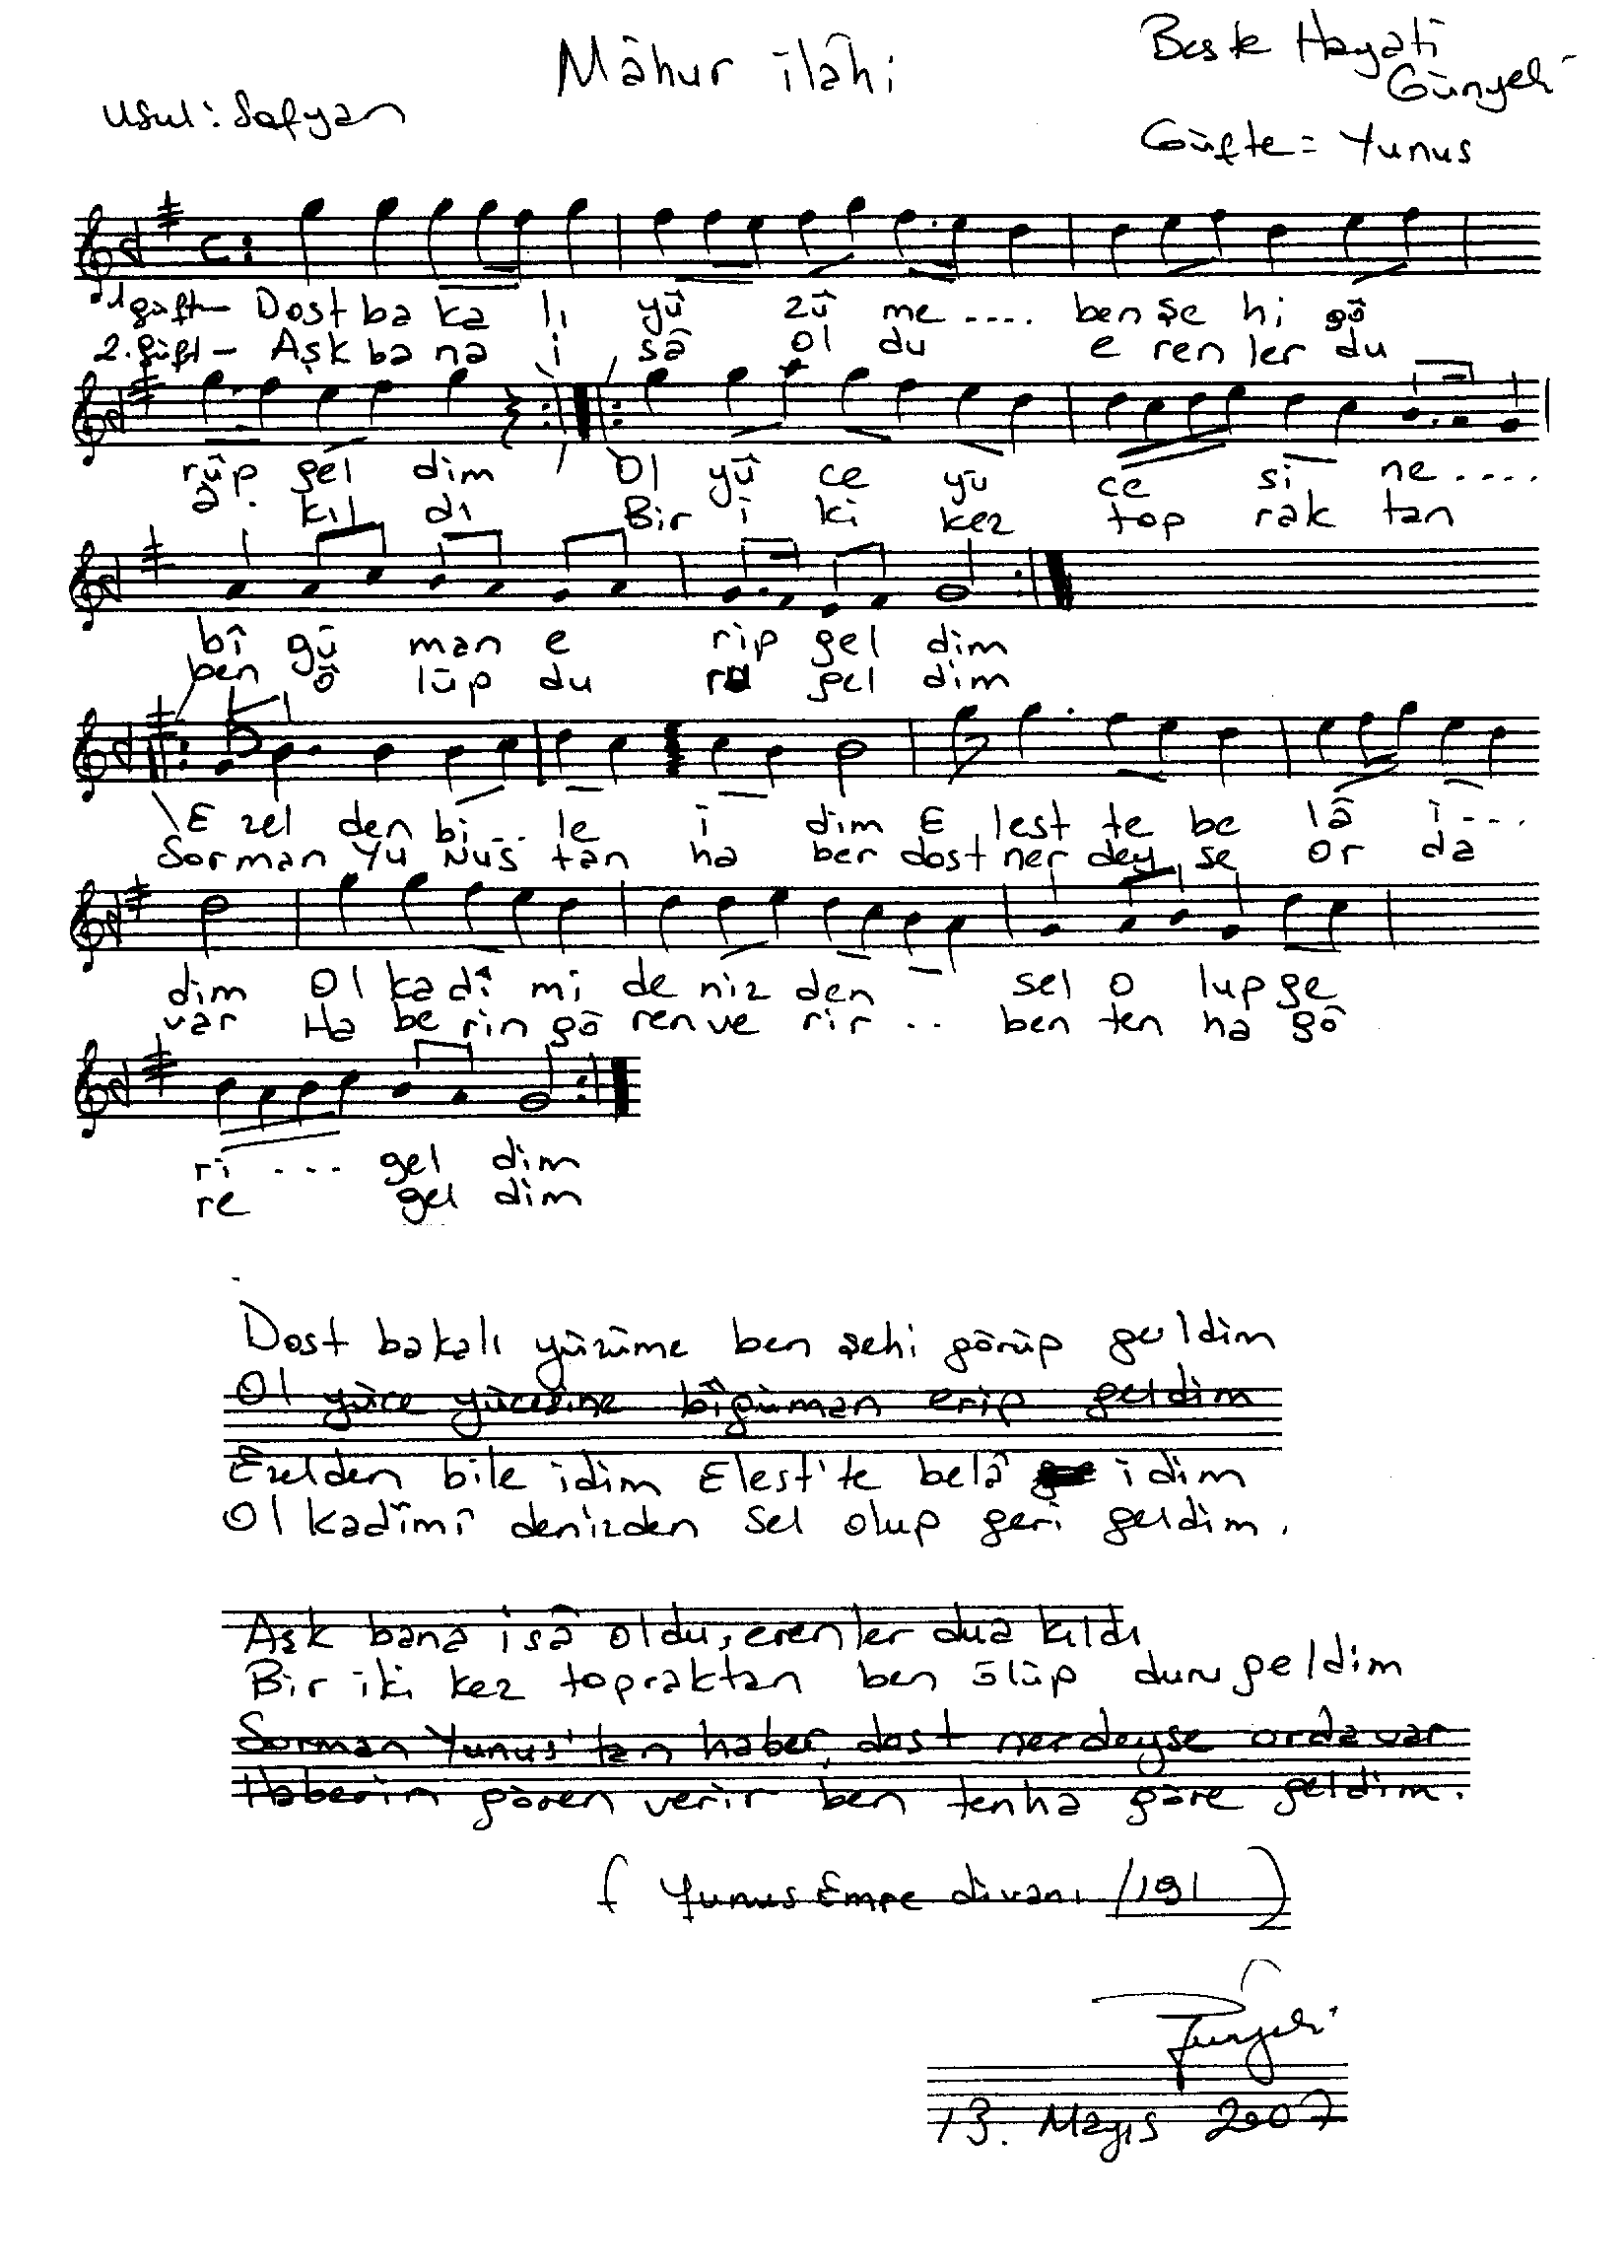 Mâhur ilâhi
Beste Hayati
Günyeli
Usul: Sofyan
Güfte = Yunus
1. güft- Dost ba ka lı yü zü me .... ben şe hi gö
2. güft- Aşk ba na i sâ ol du e ren ler du
rüp gel dim Ol yü ce yü ce si ne ....
â . kıl dı Bir i ki kez top rak tan
bî gü man e rip gel dim
ben ö lüp du ru gel dim
E zel den bi .. le i dim E lest te be lâ i ...
Sor man Yu nus tan ha ber dost ner dey se or da
dim Ol ka dî mi de niz den sel o lup ge
var Ha be rin gö ren ve rir .. ben ten ha gö
ri ... gel dim
re gel dim
Dost bakalı yüzüme ben şehi görüp geldim
Ol yüce yücesine bîgüman erip geldim
Ezelden bile idim Elest'te belâ idim
Ol kadîmî denizden sel olup geri geldim.
Aşk bana isâ oldu, erenler dua kıldı
Bir iki kez topraktan ben ölüp duru geldim
Sorman Yunus'tan haber, dost nerdeyse orda var
Haberin gören verir ben tenha göre geldim.
( Yunus Emre divanı / 191 )
Günyeli
13. Mayıs 2007